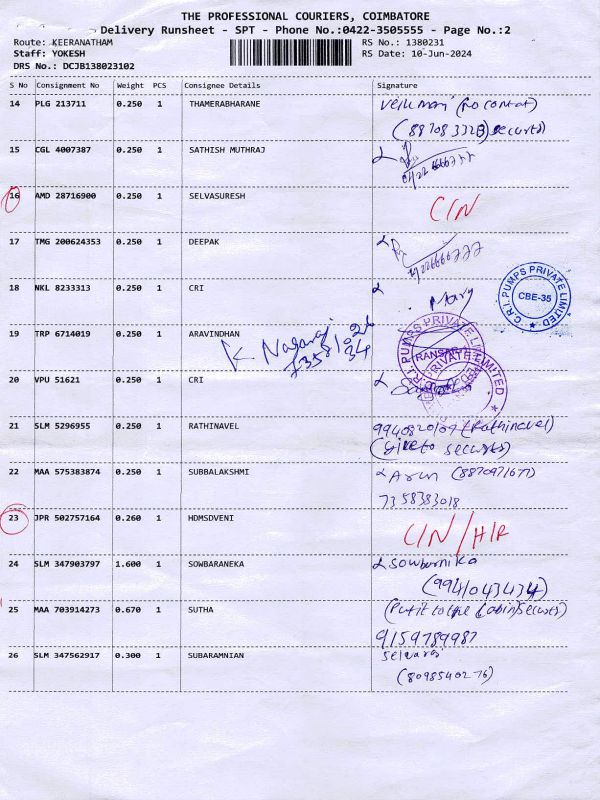 THE PROFESSIONAL COURIERS, COIMBATORE
Delivery Runsheet - SPT - Phone No.:0422-3505555 - Page No.:2
Route: KEERANATHAM
Staff: YOKESH
DRS No.: DCJB138023102
RS No.: 1380231
RS Date: 10-Jun-2024
S No Consignment No Weight PCS Consignee Details Signature
14 PLG 213711 0.250 1 THAMERABHARANE
15 CGL 4007387 0.250 1 SATHISH MUTHRAJ
16 AMD 28716900 0.250 1 SELVASURESH C/N
17 TMG 200624353 0.250 1 DEEPAK
18 NKL 8233313 0.250 1 CRI Mary
C.R.I. PUMPS PRIVATE LIMITED
CBE-35
19 TRP 6714019 0.250 1 ARAVINDHAN
Nagaraj
C.R.I. PUMPS PRIVATE LIMITED
20 VPU 51621 0.250 1 CRI
21 SLM 5296955 0.250 1 RATHINAVEL 9940820109 (Rathinavel)
(give to
22 MAA 575383874 0.250 1 SUBBALAKSHMI Arun (8870971677)
7358383018
23 JPR 502757164 0.260 1 HDMSDVENI C/N/H/R
24 SLM 347903797 1.600 1 SOWBARANEKA Sowbarnika
(9941043434)
25 MAA 703914273 0.670 1 SUTHA (Put it to the
9159789987
26 SLM 347562917 0.300 1 SUBARAMNIAN Selvaraj
(8098540276)